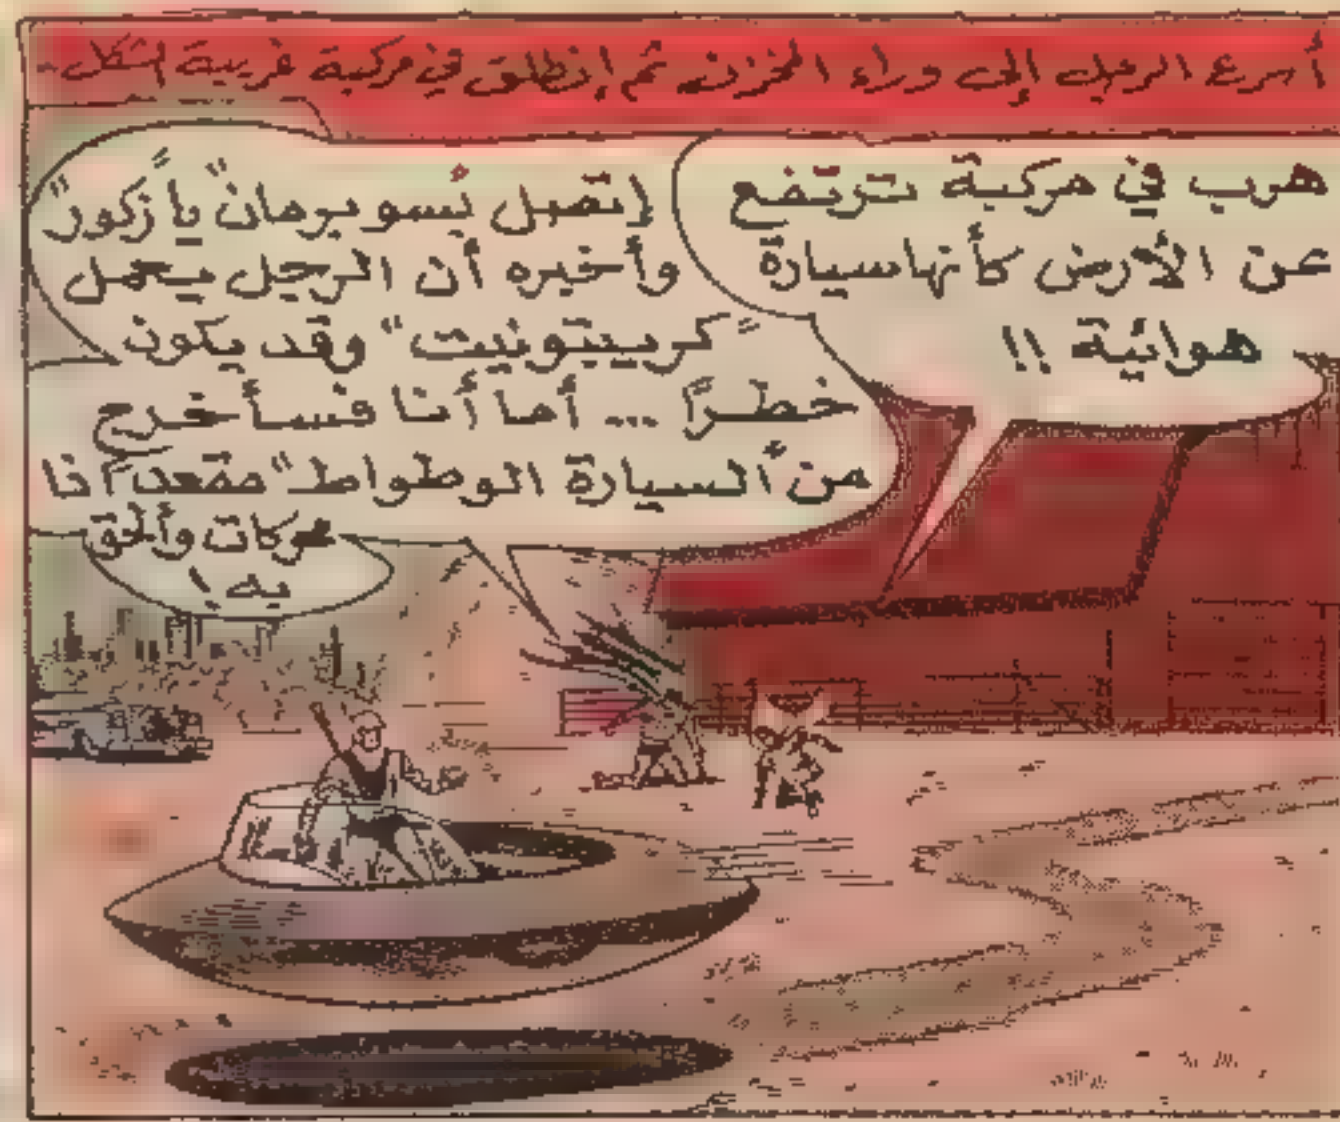 أسرع الرجل إلى وراء المخزن ثم إنطلق في مركبة غريبة الشكل -
هرب في مركبة ترتفع
عن الأرض كأنها سيارة
هوائية !!
إتصل بسوبرمان" يا "زكور"
وأخبره أن الرجل يحمل
"كريبتونيت" وقد يكون
خطرًا ... أما أنا فسأخرج
من السيارة الوطواط" مقعدًا ذا
محركات وألحق
به !